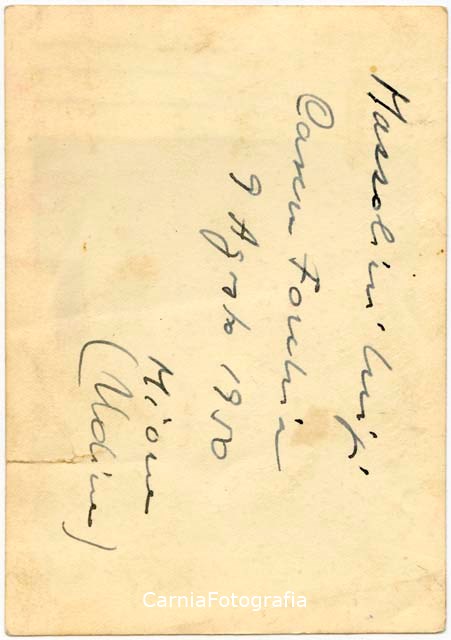 Mazzolini Luigi
Casera
9 Agosto 1950
Mione
(Udine)
CarniaFotografia